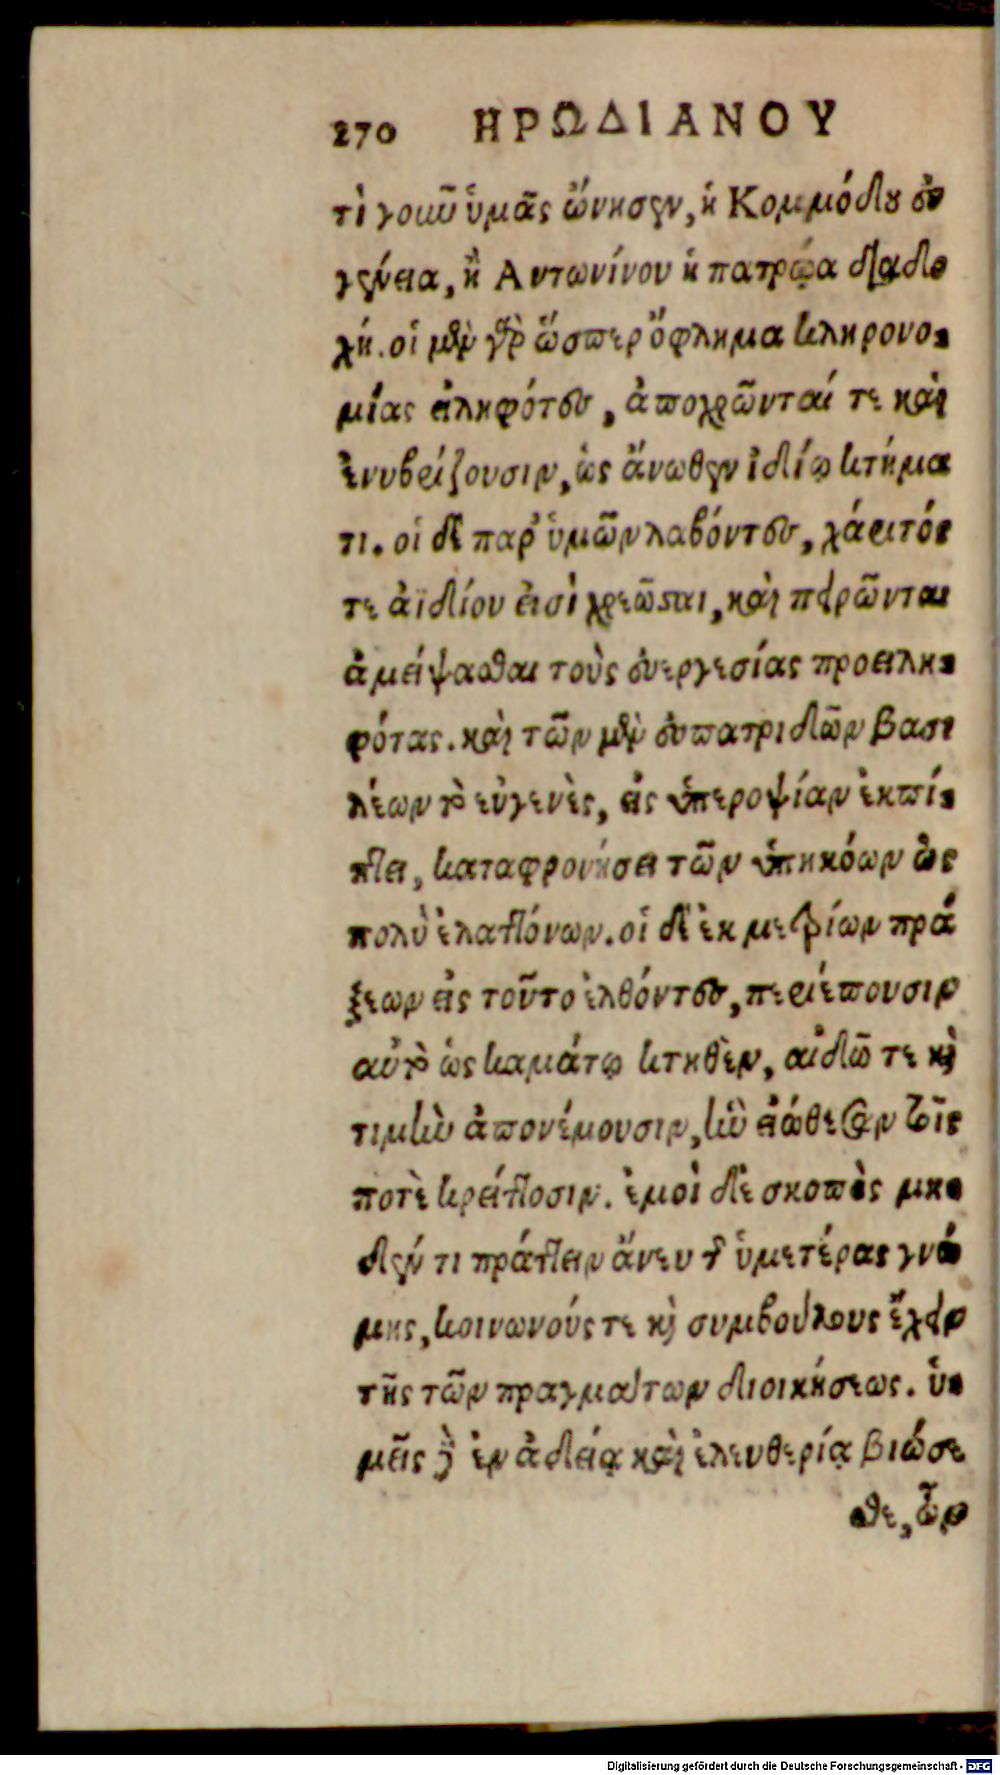 270 ΗΡΩΔΙΑΝΟΥ
τὶ γοιῦ ὑμᾶς ὤνησεν, ἡ Κομμόδου εὐ
γένεια, ἢ Αντωνίνου ἡ πατρῴα διαδο
χή. οἱ μὲν γὰρ ὥσπερ ὄφλημα κληρονο-
μίας εἰληφότες, ἀποχρῶνταί τε καὶ
ἐνυβρίζουσιν, ὡς ἄνωθεν ἰδίῳ κτήμα
τι. οἱ δὲ παρ' ὑμῶν λαβόντες, χάριτός
τε ἀϊδίου εἰσὶ χρεῶσαι, καὶ πειρῶνται
ἀμείψασθαι τοὺς εὐεργεσίας προειλη-
φότας. καὶ τῶν μὲν εὐπατριδῶν βασι
λέων τὸ εὐγενὲς, εἰς ὑπεροψίαν ἐκπί-
πτει, καταφρονήσει τῶν ὑπηκόων ὡς
πολὺ ἐλαττόνων. οἱ δὲ ἐκ μετρίων πρά
ξεων εἰς τοῦτο ἐλθόντες, περιέπουσιν
αὐτὸ ὡς καμάτῳ κτηθὲν, αἰδῶ τε καὶ
τιμὴν ἀπονέμουσιν, ἣν εἰώθεσαν τοῖς
ποτὲ κρείττοσιν. ἐμοὶ δὲ σκοπὸς μη-
δέν τι πράττειν ἄνευ τῆς ὑμετέρας γνώ
μης, κοινωνούς τε καὶ συμβούλους ἔχειν
τῆς τῶν πραγμάτων διοικήσεως. ὑ-
μεῖς δὲ ἐν ἀδείᾳ καὶ ἐλευθερίᾳ βιώσε
σθε, ὧν
Digitalisierung gefördert durch die Deutsche Forschungsgemeinschaft - DFG